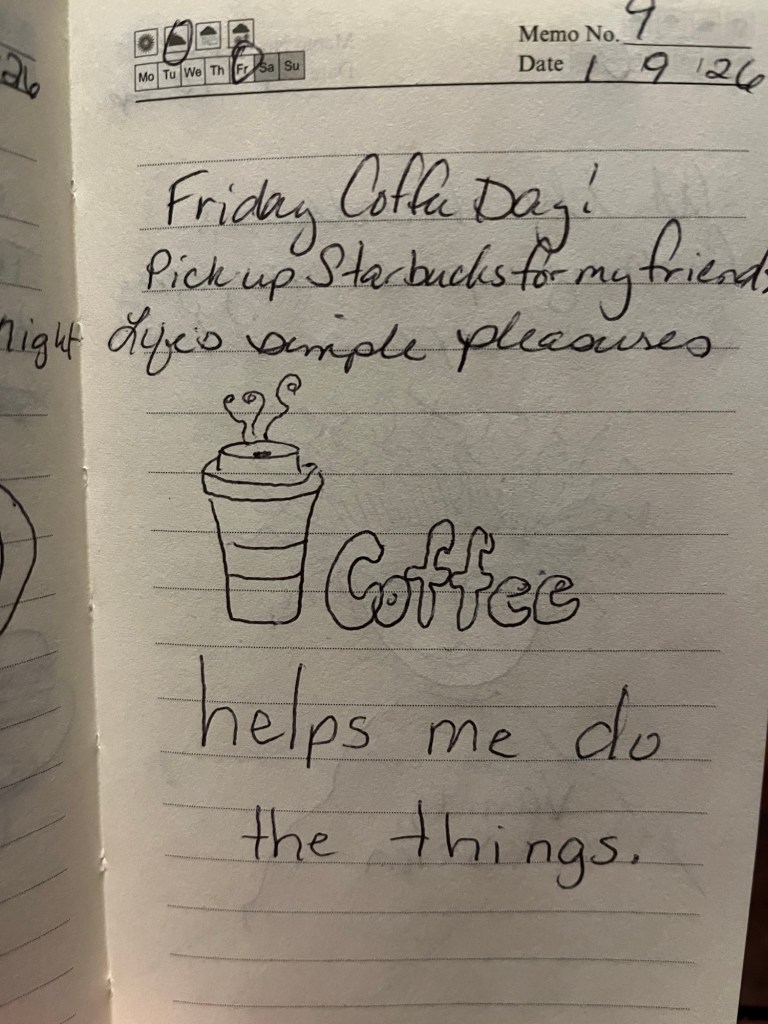 Memo No. 9
Mo Tu We Th Fr Sa Su
Date 1 9 '26
'26
Friday Coffa Day!
Pick up Starbucks for my friends
night
Life's simple pleasures
Coffee
helps me do
the things.